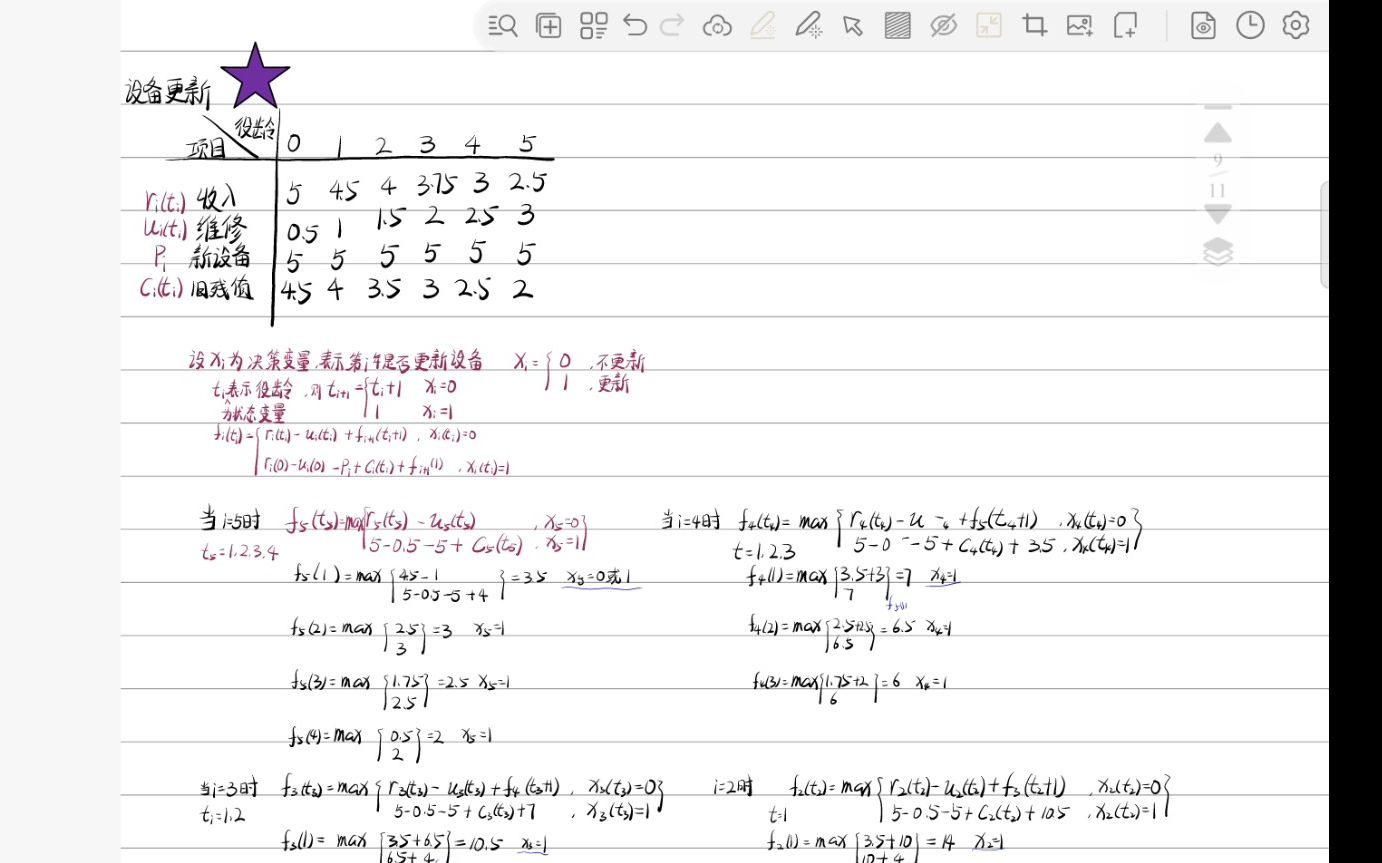 设备更新
役龄
项目 0 1 2 3 4 5
ri(ti) 收入 5 4.5 4 3.75 3 2.5
ui(ti) 维修 0.5 1 1.5 2 2.5 3
Pi 新设备 5 5 5 5 5 5
Ci(ti) 旧残值 4.5 4 3.5 3 2.5 2
9
11
设xi为决策变量,表示第i年是否更新设备 xi={0 ,不更新
1 ,更新
ti表示役龄,则ti+1={ti+1 xi=0
为状态变量 1 xi=1
fi(ti)={ri(ti)-ui(ti)+fi+1(ti+1), xi(ti)=0
ri(0)-ui(0)-Pi+Ci(ti)+fi+1(1) ,xi(ti)=1
当i=5时 f5(t5)=max{r5(t5)-u5(t5) , x5=0}
t5=1,2,3,4 5-0.5-5+C5(t5), x5=1
f5(1)=max{4.5-1 }=3.5 x5=0或1
5-0.5-5+4
f5(2)=max{2.5}=3 x5=1
3
f5(3)=max{1.75}=2.5 x5=1
2.5
f5(4)=max{0.5}=2 x5=1
2
当i=4时 f4(t4)=max{r4(t4)-u +f5(t4+1) ,x4(t4)=0}
t=1,2,3 5-0 -5+C4(t4)+3.5,x4(t4)=1
f4(1)=max{3.5+3}=7 x4=1
7
f5(1)
f4(2)=max{2.5+2.5}=6.5 x4=1
6.5
f4(3)=max{1.75+2}=6 x4=1
6
当i=3时 f3(t3)=max{r3(t3)-u3(t3)+f4(t3+1), x3(t3)=0}
ti=1,2 5-0.5-5+C3(t3)+7 , x3(t3)=1
f3(1)=max{3.5+6.5}=10.5 x3=1
6.5+4
i=2时 f2(t2)=max{r2(t2)-u2(t2)+f3(t2+1) ,x2(t2)=0}
t=1 5-0.5-5+C2(t2)+10.5 ,x2(t2)=1
f2(1)=max{3.5+10}=14 x2=1
10+4